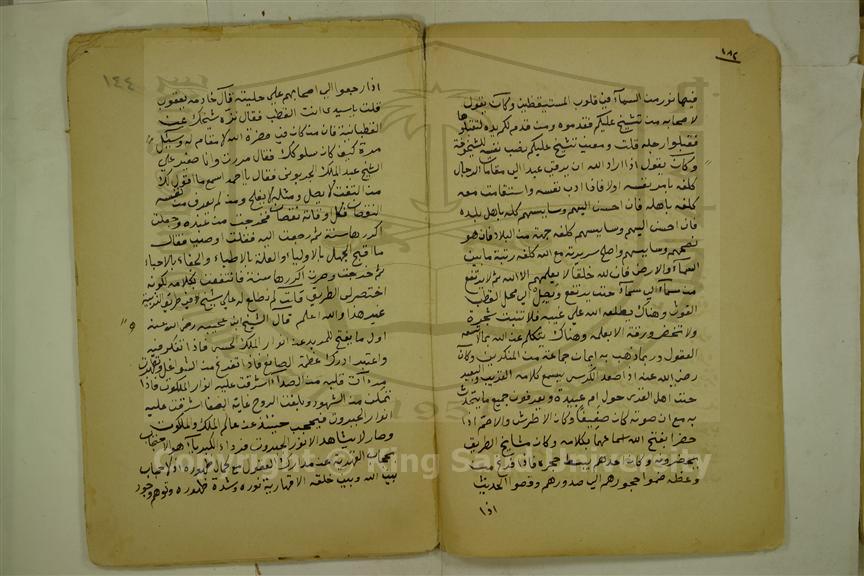 ١٨٢
فيها نور من السماء في قلوب المستيقظين وكان يقول
لاصحابه من تشيخ عليكم فقدموه ومن قدم لكم يده لتقبلوها
فقبلوا رجله قلت ومعنى تشيخ عليكم نصب نفسه للشيخوخة
وكان يقول اذا اراد الله ان يرقي عبدا الى مقامات الرجال
كلفه بامر نفسه اولا فاذا ادب نفسه واستقامت معه
كلفه باهله فان احسن اليهم وسايسهم كلفه باهل بلده
فان احسن اليهم وسايسهم كلفه جهة من البلاد فان هو
نصحهم وسايسهم واصلح سريرته مع الله كلفه رتبة ما بين
السماء والارض فان لله خلقا لا يعلمهم الا الله ثم لا يرتفع
من سماء الى سماء حتى يرتفع ويصل الى محل القطب
الغوث وهناك يطلعه الله على غيبه فلا تنبت شجرة
ولا تخضر ورقة الا بعلمه وهناك يتكلم عن الله بما لا تسعه
العقول وربما ذهب به ايمان جماعة من المنكرين وكان
رضي الله عنه اذا صعد الكرسي يسمع كلامه القريب والبعيد
حتى اهل القرى حول ام عبيدة ويعرفون جميع ما يتحدث
به مع ان صوته كان ضعيفا وكان الاطرش والاصم اذا
حضرا يفتح الله اسماعهما بكلامه وكان مشايخ الطريق
يحضرونه وكان احدهم يبسط حجره فاذا فرغ من
وعظه ضموا حجورهم الى صدورهم وقصوا الحديث
اذا
١٤٤
اذا رجعوا الى اصحابهم على جليته قال خادمه يعقوب
قلت يا سيدي انت القطب فقال نزه شيخك عن
القطبانية فان من كان في حضرة الله لا مقام له وسئل
مرة كيف كان سلوكك فقال مررت وانا صغير على
الشيخ عبد الملك الخرنوبي فقال يا احمد اسمع ما اقول لك
من التفت لا يصل ومثله لا يفلح ومن لم يعرف من نفسه
النقصان فكل اوقاته نقصان فخرجت من عنده وجعلت
اكررها سنة ثم رجعت اليه فقلت اوصني فقال
ما اقبح الجهل بالاولياء والعلة بالاطباء والجفاء بالاحباء
ثم خرجت وصرت اكررها سنة فانتفعت بكلامه لكونه
اختصر لي الطريق
عبد هذا والله اعلم قال الشيخ ابن عجيبة رضي الله عنه
اول ما يفتح للمريد عن انوار الملك الحسي فاذا تفكر فيه
واعتبر ادرك عظمة الصانع فاذا تفرغ من الشواغل وتطهرت
مرءات قلبه من الصدا اشرقت عليه انوار الملكوت فاذا
تمكنت من الشهود وبلغت الروح غاية الصفا اشرقت عليه
انوار الجبروت فيحجب حينئذ عن عالم الملك والملكوت
وصار لا يشاهد الا نور الجبروت فرداء الكبرياء هو الاحتجاب
بحجاب القهرية عن مدارك العقول مع كمال ظهوره اذ لا حجاب
بين الله وبين خلقه الا قهارية نوره وشدة ظهوره وتوهم وجود
Copyright © King Saud University
1957